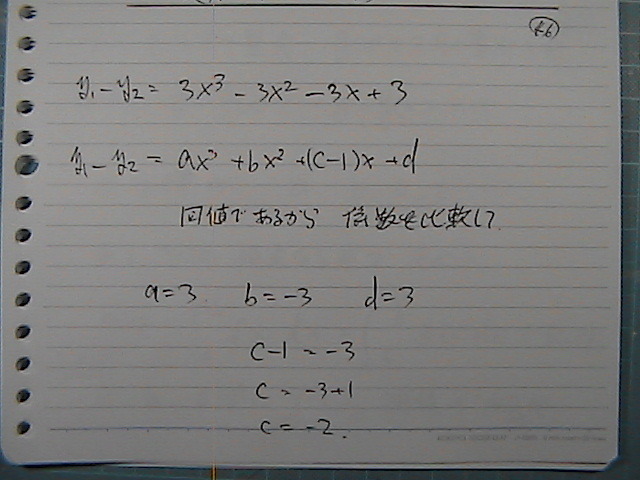 K6
y₁-y₂= 3x³-3x²-3x+3
y₁-y₂ = ax³+bx²+(c-1)x+d
同値であるから 係数を比較して
a=3. b=-3 d=3
c-1=-3
c=-3+1
c=-2.